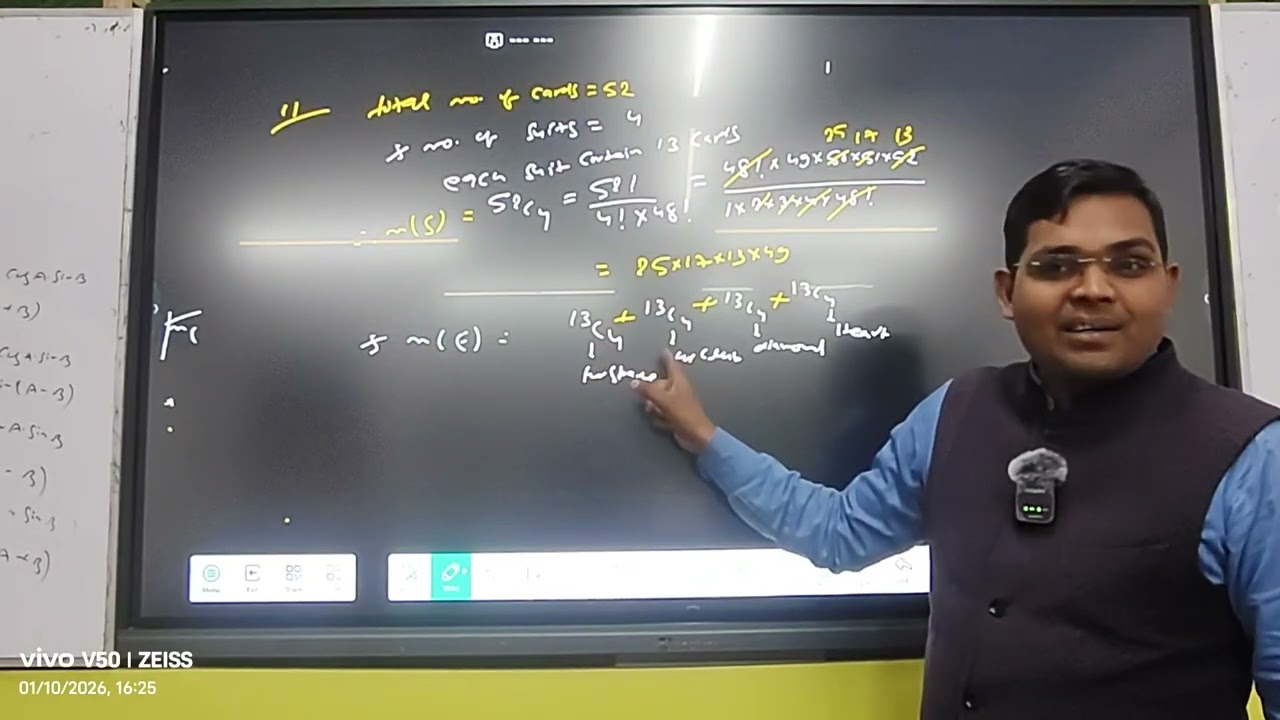 11 total no. of cards = 52
& no. of suits = 4
each suit contain 13 cards
∴ n(S) = 52C4 = 52! / 4! × 48! = 48! × 49 × 50 × 51 × 52 / 1 × 2 × 3 × 4 × 48!
25 17 13
= 25×17×13×49
& n(E) = 13C4 + 13C4 + 13C4 + 13C4
for spade for club diamond heart
Cos A Sin B
+ B)
- (A - B)
A. Sin B
- B)
Sin B
A + B)
Menu
vivo V50 | ZEISS
01/10/2026, 16:25